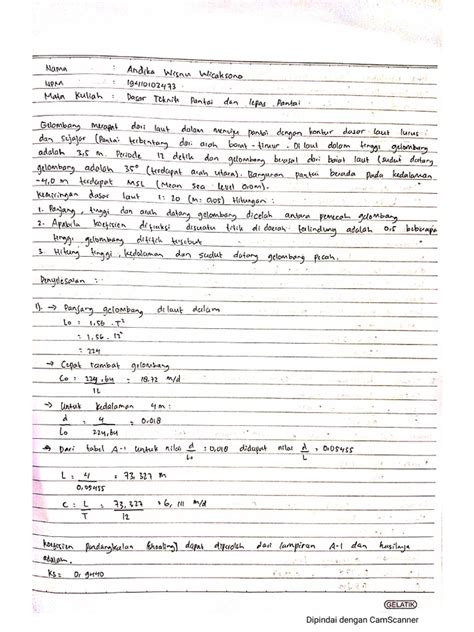 Nama : Andika Wisnu Wicaksono
NPM : 19410102473
Mata Kuliah : Dasar Teknik Pantai dan Lepas Pantai
Gelombang merapat dari laut dalam menuju pantai dengan kontur dasar laut lurus
dan sejajar (Pantai terbentang dari arah barat - timur. Di laut dalam tinggi gelombang
adalah 3,5 m. Periode 12 detik dan gelombang berasal dari barat laut (sudut datang
gelombang adalah 35° (terdapat arah utara). Bangunan pantai berada pada kedalaman
-4,0 m terdapat MSL (Mean Sea level 0,0m).
Kemiringan dasar laut 1 : 20 (m : 0,05) Hitungan :
1. Panjang, tinggi dan arah datang gelombang dicelah antara pemecah gelombang
2. Apabila koefisien difraksi disuatu titik di daerah terlindung adalah 0,5 beberapa
tinggi gelombang dititik tersebut
3. Hitung tinggi, kedalaman dan sudut datang gelombang pecah.
Penyelesaian :
1). → Panjang gelombang di laut dalam
Lo = 1,56 . T²
= 1,56 . 12²
= 224
→ Cepat rambat gelombang
Co = 224,64 = 18.72 m/d
12
→ Untuk kedalaman 4m :
d = 4 = 0,018
Lo 224,64
→ Dari tabel A-1 untuk nilai d/Lo = 0,018 didapat nilai d/L = 0,05455
L = 4 = 73,327 m
0,05455
C = L = 73,327 = 6,111 m/d
T 12
Koefisien pendangkalan (Shoaling) dapat diperoleh dari lampiran A-1 dan hasilnya
adalah.
Ks = 
GELATIK
Dipindai dengan CamScanner